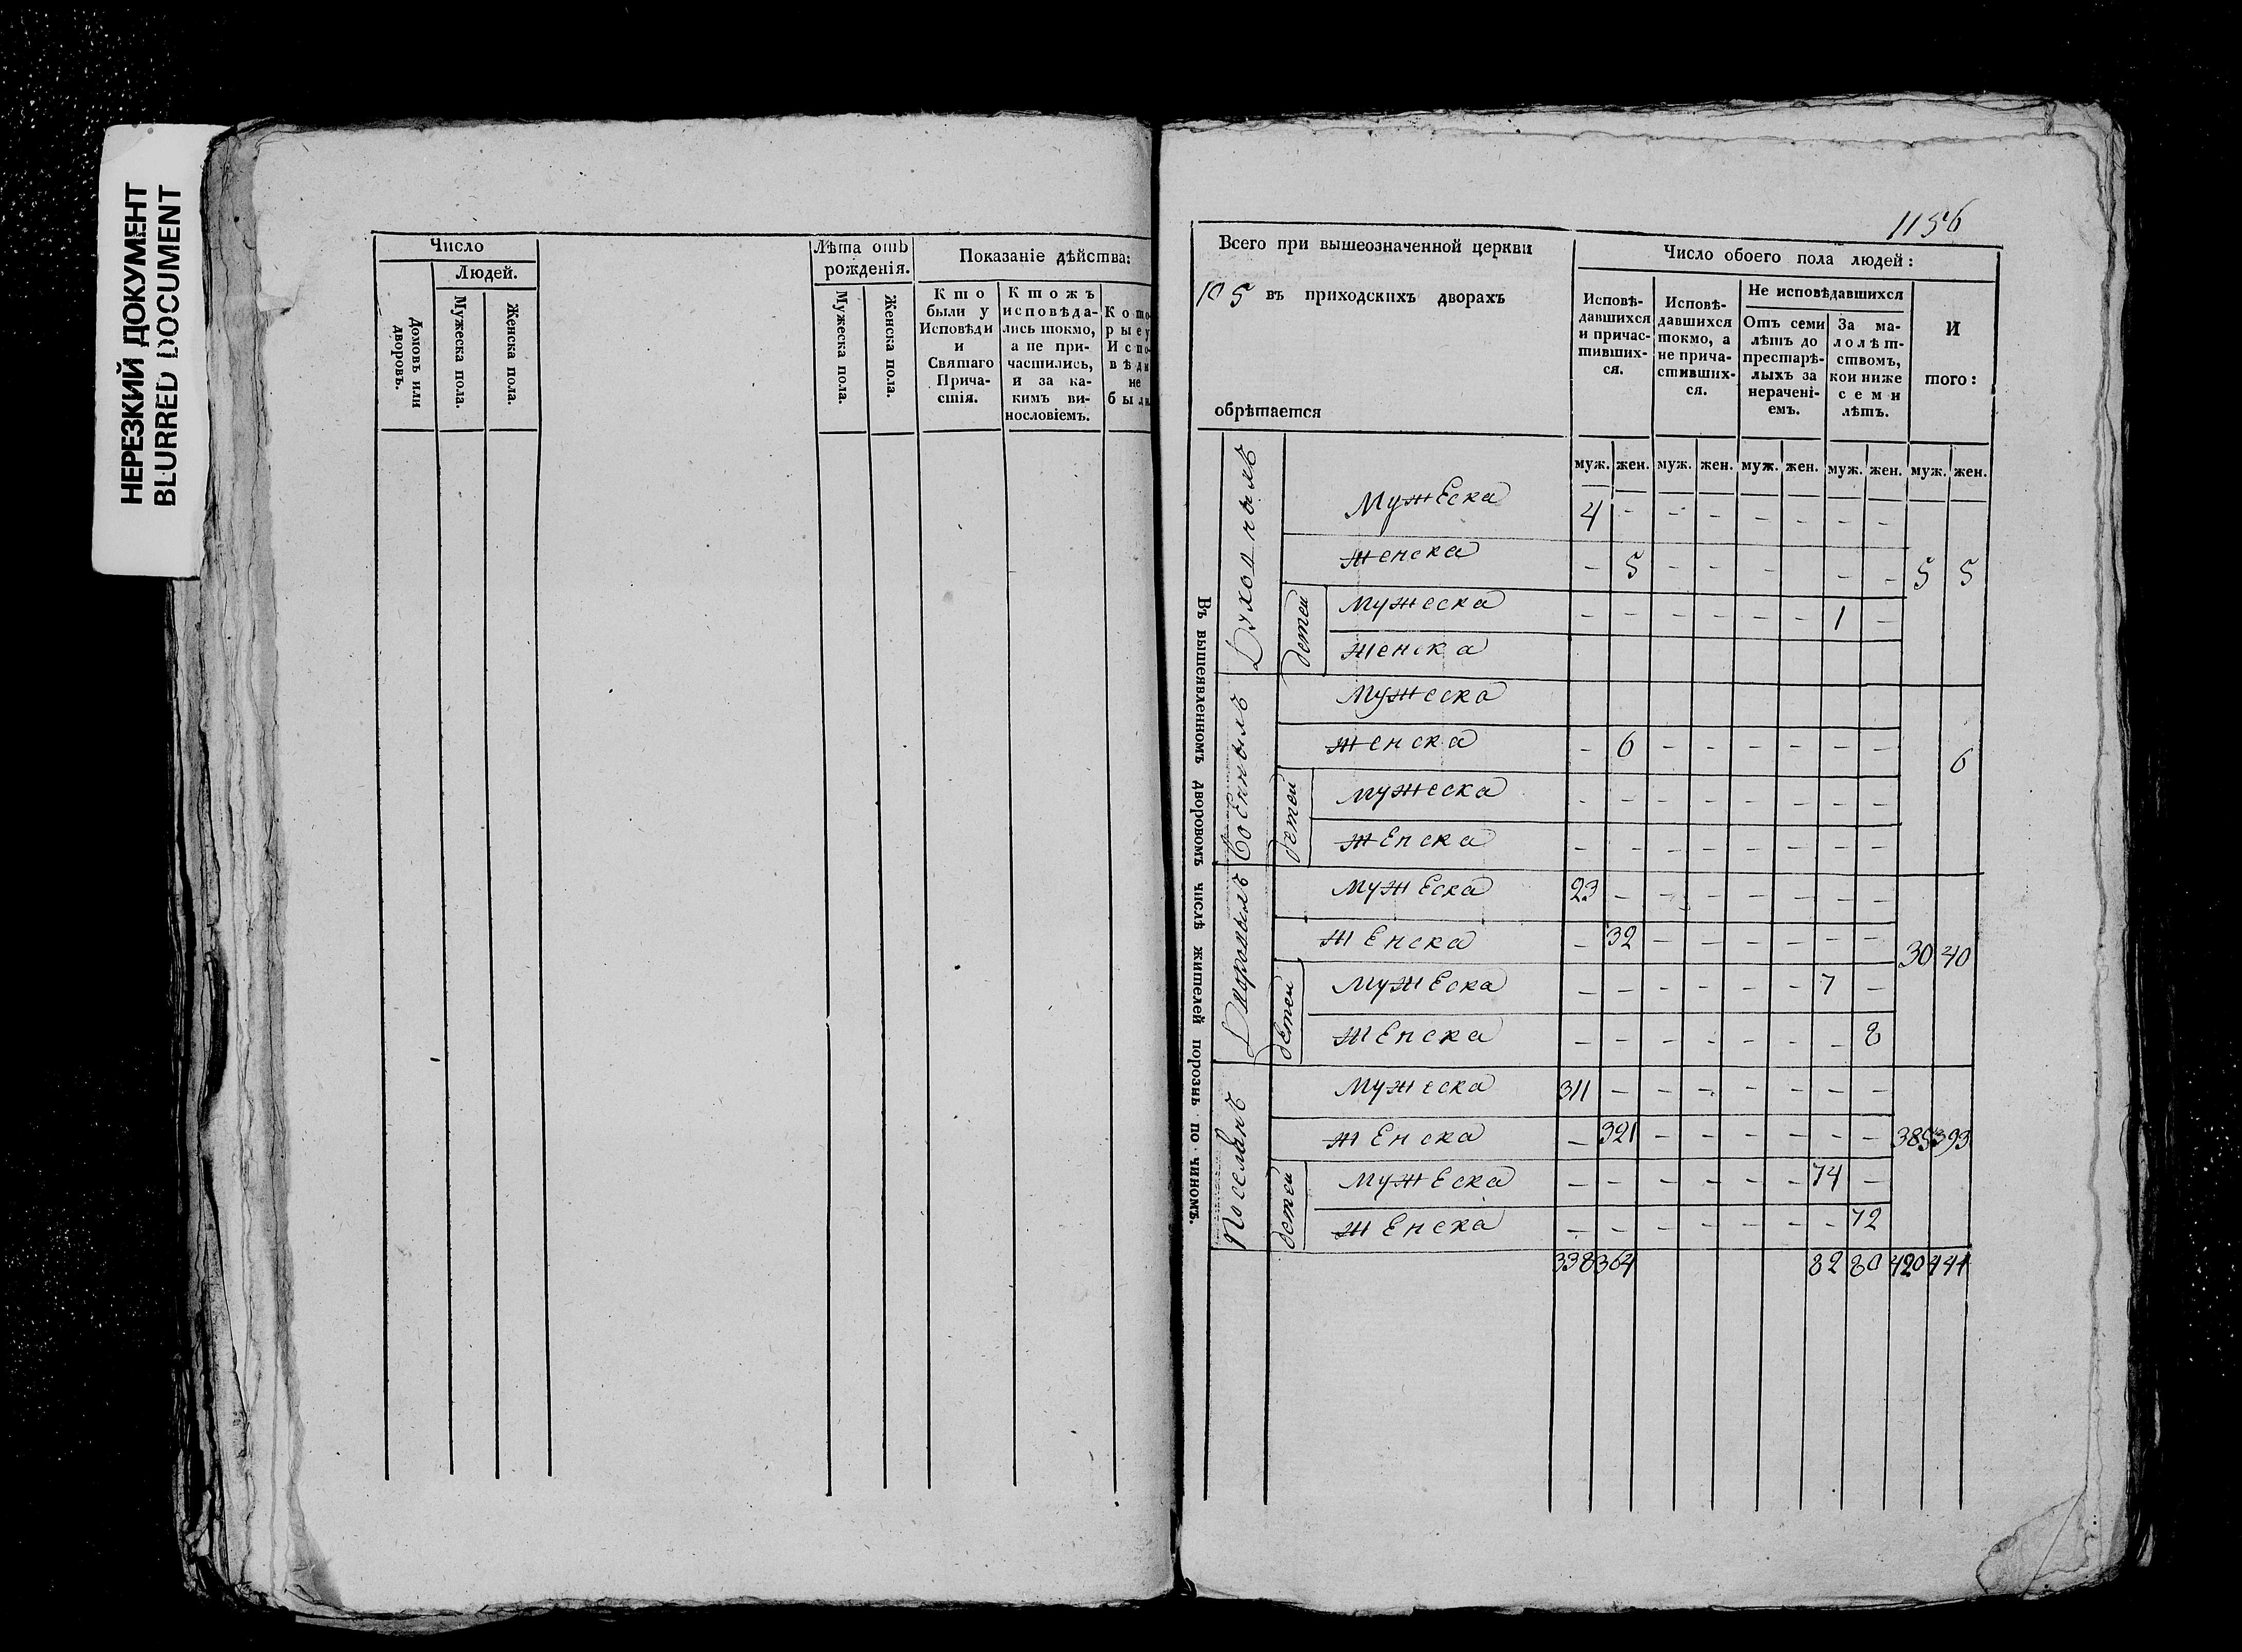 НЕРЕЗКИЙ ДОКУМЕНТ
BLURRED DOCUMENT
Число
Людей.
Домовъ или дворовъ.
Мужеска пола.
Женска пола.
Лѣта отъ
рожденія.
Мужеска пола.
Женска пола.
Показаніе дѣйства:
Кто
были у
Исповѣди
и
Святаго
Прича-
стія.
Ктожъ
исповѣда-
лись токмо,
а не при-
частились,
и за ка-
кимъ ви-
нословіемъ.
Кото-
рые у
Испо-
вѣди
не
были
1156
Всего при вышеозначенной церкви
105 въ приходскихъ дворахъ
обрѣтается
Число обоего пола людей:
Исповѣ-
давшихся
и причас-
тивших-
ся.
Исповѣ-
давшихся
токмо, а
не прича-
стивших-
ся.
Не исповѣдавшихся
Отъ семи
лѣтъ до
престарѣ-
лыхъ за
нерачені-
емъ.
За ма-
лолѣт-
ствомъ,
кои ниже
семи
лѣтъ.
И
того:
муж. жен. муж. жен. муж. жен. муж. жен. муж. жен.
Въ вышеявленномъ дворовомъ числѣ жителей порознь по чиномъ.
Духовныхъ
Мужеска 4 - - - - - - -
Женска - 5 - - - - - 5 5
детей
Мужеска - - - - - - 1 -
Женска
Военныхъ
Мужеска
Женска - 6 - - - - - - 6
детей
Мужеска - - - - - - - -
Женска - - - - - - - -
Дворовыхъ
Мужеска 23 - - - - - - -
Женска - 32 - - - - - - 30 40
детей
Мужеска - - - - - - 7 -
Женска - - - - - - - 8
Поселянъ
Мужеска 311 - - - - - - -
Женска - 321 - - - - - - 385 393
детей
Мужеска - - - - - - 74 -
Женска - - - - - - - 72
338 364 82 80 420 444